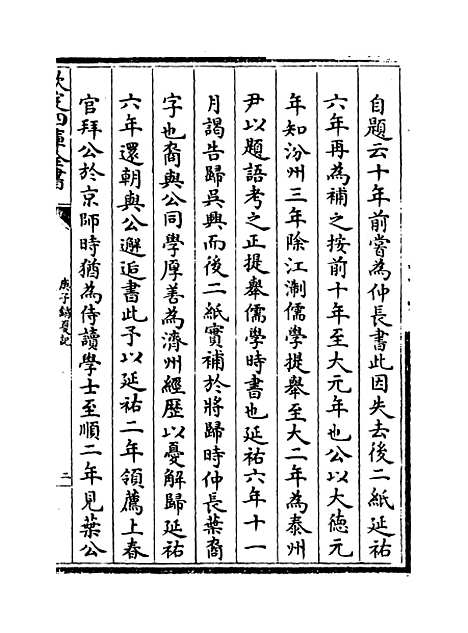 自題云十年前嘗為仲長書此因失去後二紙延祐
六年再為補之按前十年至大元年也公以大徳元
年知汾州三年除江淛儒學提舉至大二年為泰州
尹以題語考之正提舉儒學時書也延祐六年十一
月謁告歸呉興而後二紙實補於將歸時仲長葉裔
字也裔與公同學厚善為濟州經歴以憂解歸延祐
六年還朝與公邂逅書此予以延祐二年領薦上春
官拜公於京師時猶為侍讀學士至順二年見葉公
欽定四庫全書
庚子銷夏記
二